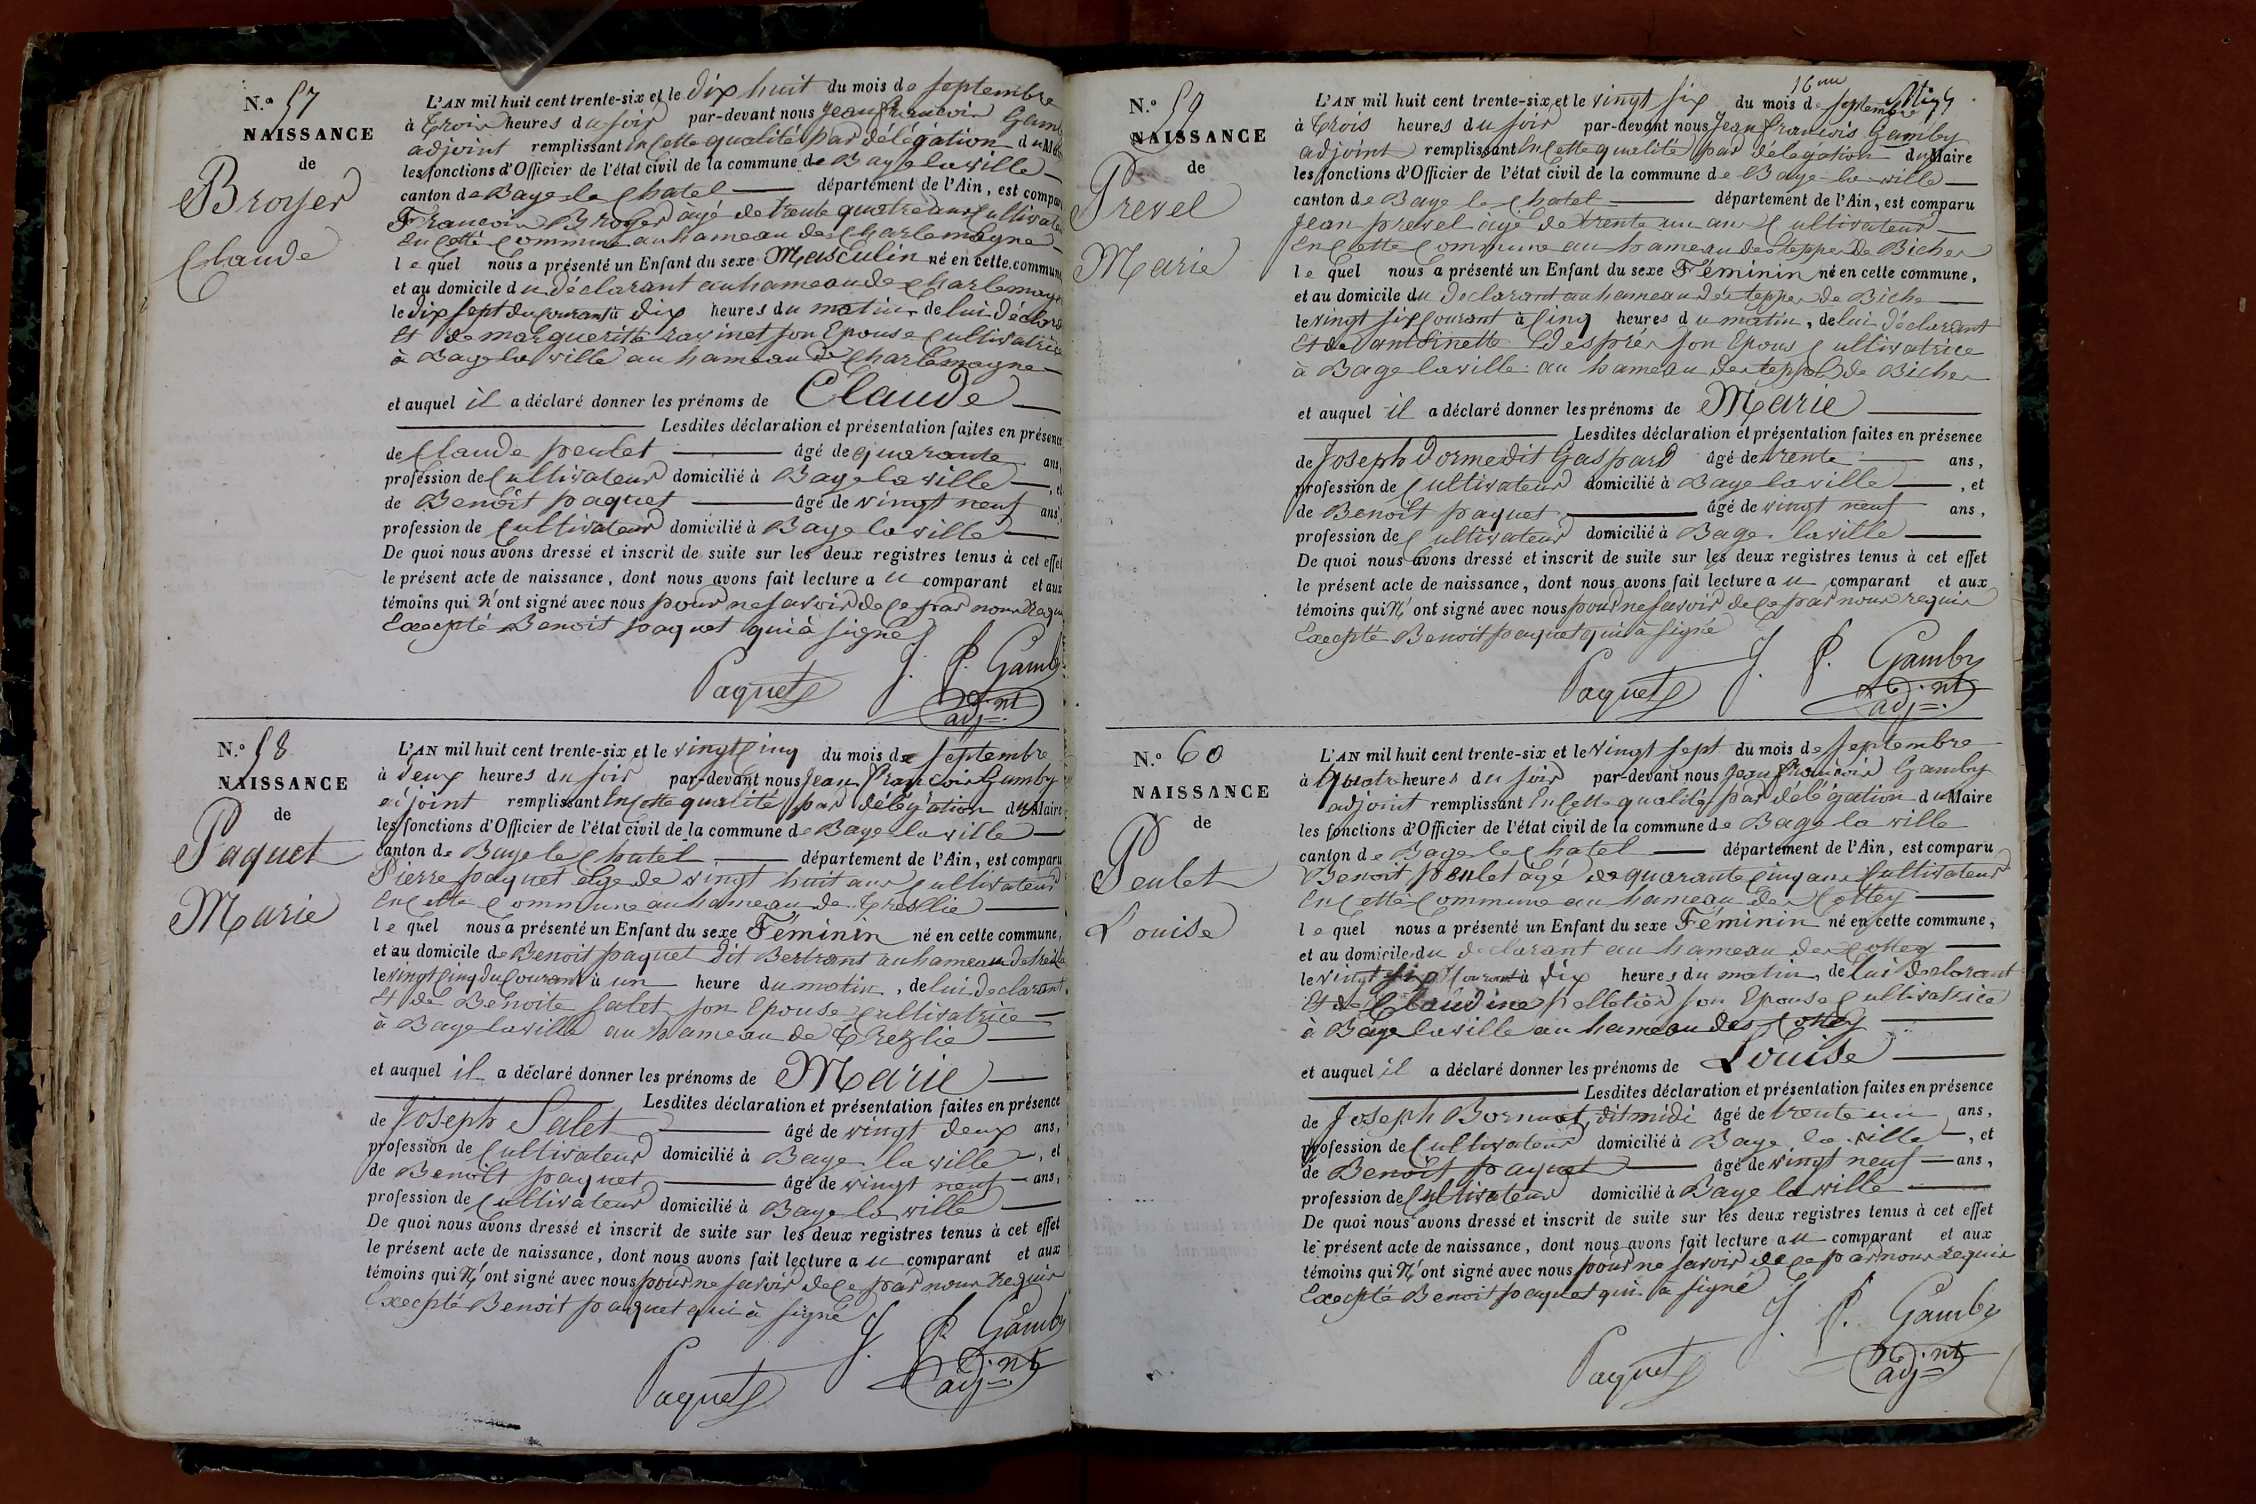 N.º 57
NAISSANCE
de
Broyer
Claude
L'AN mil huit cent trente-six et le Dix huit du mois de septembre
à trois heures du soir par-devant nous Jean françois Gamb
adjoint remplissant en cette qualité par délégation du Mai
les fonctions d'Officier de l'état civil de la commune de Bage la ville
canton de Bage le Chatel département de l'Ain, est compar
François Broyer agé de trente quatre ans Cultivate
en cette Commune au hameau de Charlemagne
le quel nous a présenté un Enfant du sexe Masculin né en cette commun
et au domicile du déclarant au hameau de Charlemagn
le dix sept du courant à dix heures du matin, de lui déclara
et de marguerite ravinet son Epouse Cultivatrice
à Bage la ville au hameau de Charlemagne
et auquel il a déclaré donner les prénoms de Claude
Lesdites déclaration et présentation faites en présence
de Claude peulet âgé de quarante ans,
profession de Cultivateur domicilié à Bage la ville , et
de Benoît paquet âgé de vingt neuf ans,
profession de Cultivateur domicilié à Bage la ville
De quoi nous avons dressé et inscrit de suite sur les deux registres tenus à cet effet
le présent acte de naissance, dont nous avons fait lecture au comparant et aux
témoins qui n'ont signé avec nous pour ne savoir de ce par nous requi
Excepté Benoit paquet qui à signé
Paquet J. f. Gamby
adj.nt
N.º 58
NAISSANCE
de
Paquet
Marie
L'AN mil huit cent trente-six et le vingt cinq du mois de septembre
à deux heures du soir par-devant nous Jean françois Gamby
adjoint remplissant en cette qualité par délégation du Maire
les fonctions d'Officier de l'état civil de la commune de Bage la ville
canton de Bage le Chatel département de l'Ain, est comparu
Pierre paquet age de vingt huit ans Cultivateur
en cette Commune au hameau de Treslie
le quel nous a présenté un Enfant du sexe Féminin né en cette commune,
et au domicile de Benoit paquet dit Bertrant au hameau de
le vingt cinq du courant à un heure du matin, de lui declarant
et de Benoite salet son Epouse cultivatrice
à Bage la ville au hameau de Trezlie
et auquel il a déclaré donner les prénoms de Marie
Lesdites déclaration et présentation faites en présence
de Joseph Salet âgé de vingt deux ans,
profession de Cultivateur domicilié à Bage la ville , et
de Benoît paquet âgé de vingt neuf ans,
profession de Cultivateur domicilié à Bage la ville
De quoi nous avons dressé et inscrit de suite sur les deux registres tenus à cet effet
le présent acte de naissance, dont nous avons fait lecture au comparant et aux
témoins qui n'ont signé avec nous pour ne savoir de ce par nous requis
Excepté Benoit paquet qui à signé
Paquet J. f. Gamby
adj.nt
16me
N.º 59
NAISSANCE
de
Prevel
Marie
L'AN mil huit cent trente-six et le vingt six du mois de septembre
à trois heures du soir par-devant nous Jean françois Gamby
adjoint remplissant en cette qualité par délégation du Maire
les fonctions d'Officier de l'état civil de la commune de Bage la ville
canton de Bage le Chatel département de l'Ain, est comparu
Jean prevel âgé de trente un ans Cultivateur
en cette Commune au hameau des teppes de Biches
le quel nous a présenté un Enfant du sexe Féminin né en cette commune,
et au domicile du declarant au hameau des teppes de Biche
le vingt six courant à cinq heures du matin, de lui déclarant
et de antoinette Desprès son Epous Cultivatrice
à Bage la ville au hameau des teppes de Biches
et auquel il a déclaré donner les prénoms de Marie
Lesdites déclaration et présentation faites en présence
de Joseph Dorme dit Gaspard âgé de trente ans,
profession de Cultivateur domicilié à Bage la ville , et
de Benoît paquet âgé de vingt neuf ans,
profession de Cultivateur domicilié à Bage la ville
De quoi nous avons dressé et inscrit de suite sur les deux registres tenus à cet effet
le présent acte de naissance, dont nous avons fait lecture au comparant et aux
témoins qui n'ont signé avec nous pour ne savoir de ce par nous requis
Excepté Benoit paquet qui à signé
Paquet J. f. Gamby
adj.nt
N.º 60
NAISSANCE
de
Peulet
Louise
L'AN mil huit cent trente-six et le vingt sept du mois de septembre
à quatre heures du soir par-devant nous Jean françois Gamby
adjoint remplissant en cette qualité par délégation du Maire
les fonctions d'Officier de l'état civil de la commune de Bage la ville
canton de Bage le Chatel département de l'Ain, est comparu
Benoit peulet âgé de quarante cinq ans Cultivateur
en cette Commune au hameau des Cottey
le quel nous a présenté un Enfant du sexe Féminin né en cette commune,
et au domicile du declarant au hameau des Cottey
le vingt six courant à dix heures du matin, de lui declarant
et de Claudine pelletier son Epouse Cultivatrice
à Bage la ville au hameau des Cottey
et auquel il a déclaré donner les prénoms de Louise
Lesdites déclaration et présentation faites en présence
de Joseph Bornuat dit midi âgé de trente un ans,
profession de Cultivateur domicilié à Bage la ville , et
de Benoît paquet âgé de vingt neuf ans,
profession de Cultivateur domicilié à Bage la ville
De quoi nous avons dressé et inscrit de suite sur les deux registres tenus à cet effet
le présent acte de naissance, dont nous avons fait lecture au comparant et aux
témoins qui n'ont signé avec nous pour ne savoir de ce par nous requis
Excepté Benoit paquet qui à signé
Paquet J. f. Gamby
adj.nt